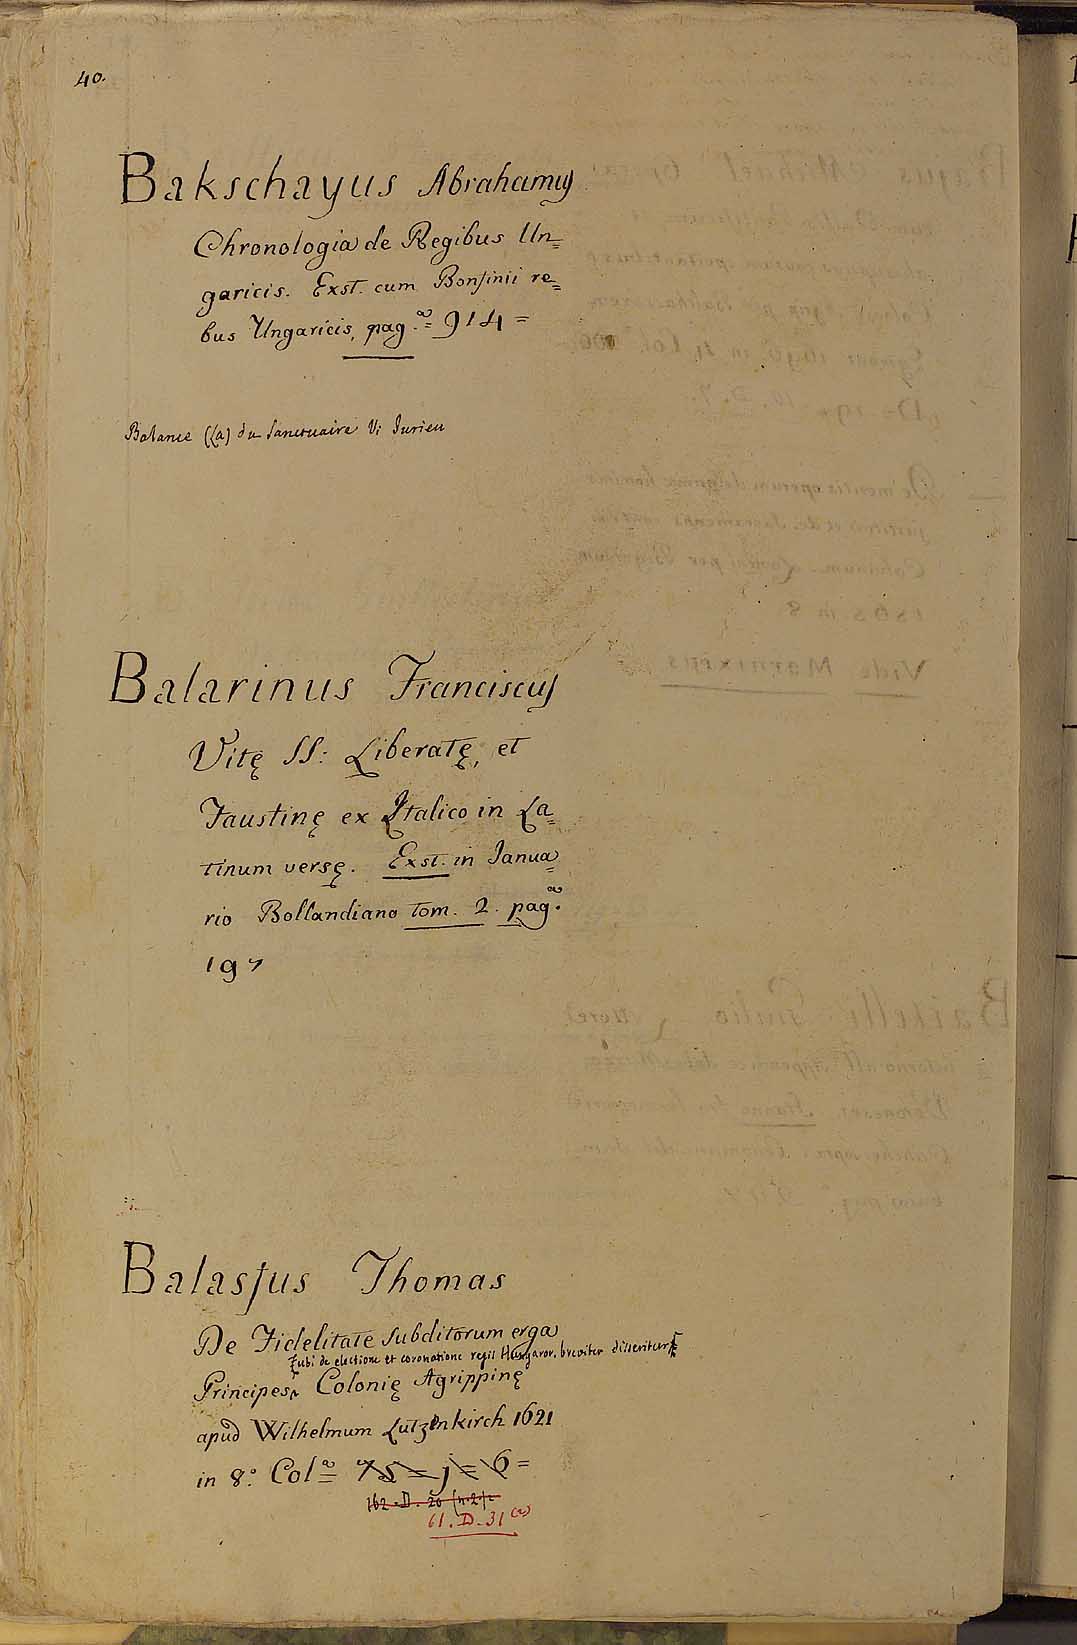 40.
Bakschayus Abrahamus
Chronologia de Regibus Un=
garicis. Exst. cum Bonfinii re=
bus Ungaricis, pag.ª= 914=
Balance (La) du Sanctuaire V: Jurieu
Balarinus Franciscus
Vitę SS: Liberatę, et
Faustinę ex Italico in La=
tinum versę. Exst. in Janua=
rio Bollandiano tom. 2. pag.ª
197
Balasfus Thomas
De Fidelitate subditorum erga
ubi de electione et coronatione regis Hungaror. breviter disseritur
Principes, Colonię Agrippinę
apud Wilhelmum Lutzenkirch 1621
in 8.° Colª= 75=j=6=
162.D.20 (n.2.)=
61.D.31 (2)